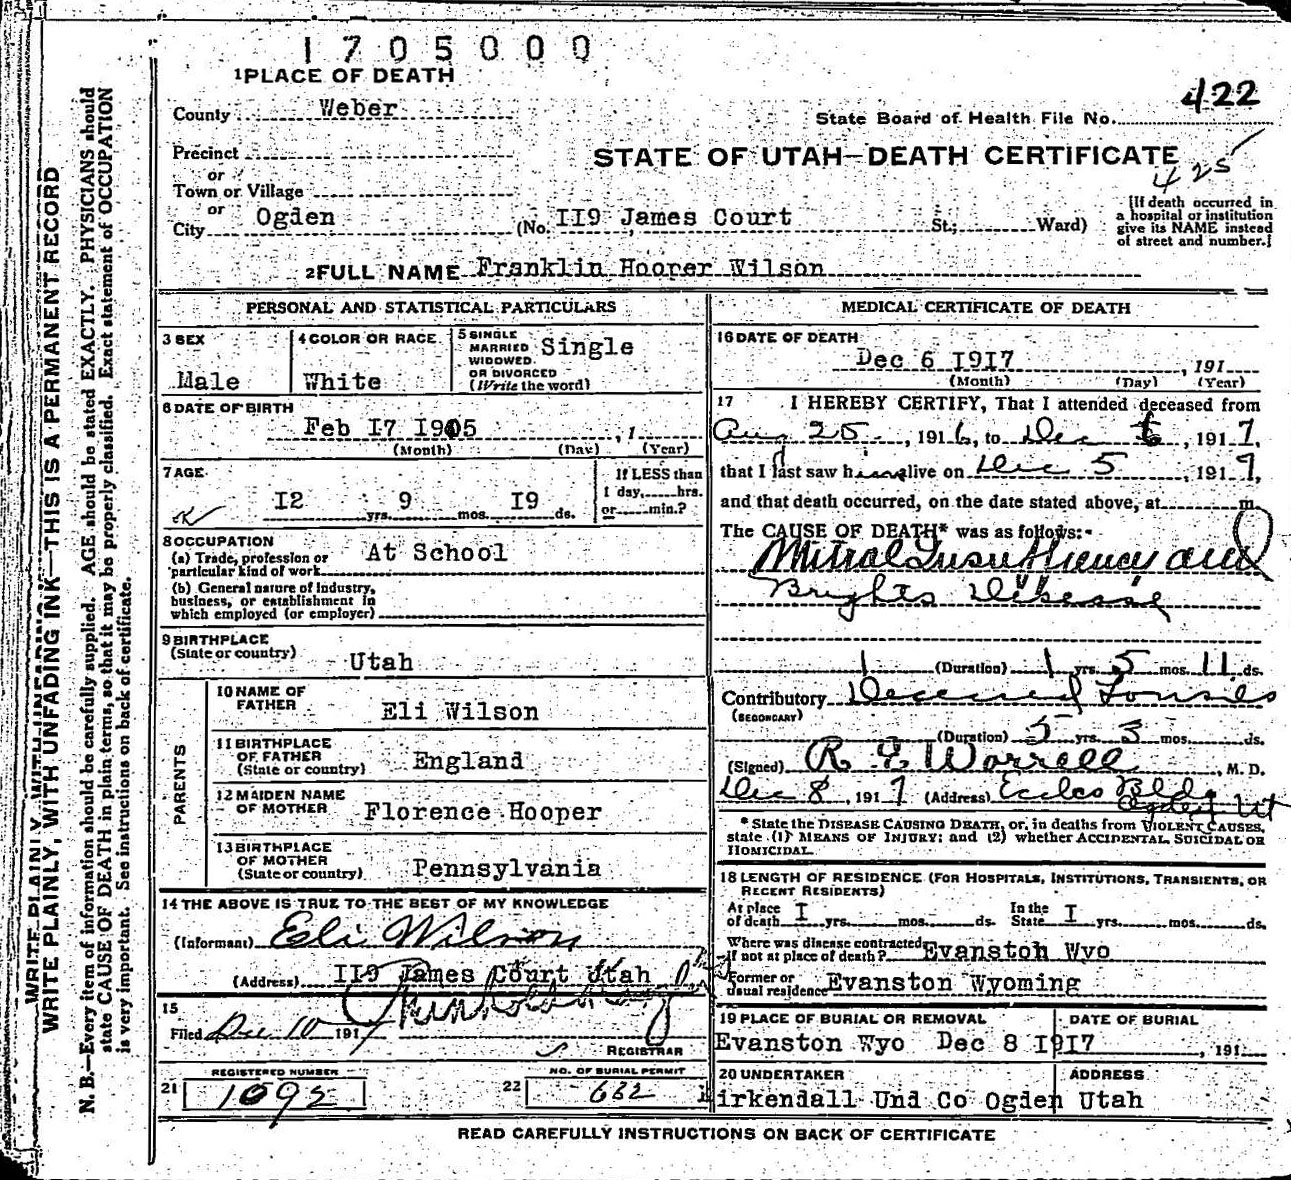 1705000
1 PLACE OF DEATH
County Weber
422
State Board of Health File No.
Precinct
STATE OF UTAH—DEATH CERTIFICATE
425
or
Town or Village
or
City Ogden (No. II9 James Court St.; Ward)
[If death occurred in
a hospital or institution
give its NAME instead
of street and number.]
2 FULL NAME Franklin Hooper Wilson
PERSONAL AND STATISTICAL PARTICULARS
3 SEX
Male
4 COLOR OR RACE
White
5 SINGLE
MARRIED
WIDOWED
OR DIVORCED
(Write the word)
Single
6 DATE OF BIRTH
Feb I7 I905 , 1
(Month) (Day) (Year)
7 AGE
I2 yrs. 9 mos. I9 ds.
If LESS than
1 day, hrs.
or min.?
8 OCCUPATION
(a) Trade, profession or
particular kind of work At School
(b) General nature of industry,
business, or establishment in
which employed (or employer)
9 BIRTHPLACE
(State or country)
Utah
PARENTS
10 NAME OF
FATHER
Eli Wilson
11 BIRTHPLACE
OF FATHER
(State or country)
England
12 MAIDEN NAME
OF MOTHER
Florence Hooper
13 BIRTHPLACE
OF MOTHER
(State or country)
Pennsylvania
14 THE ABOVE IS TRUE TO THE BEST OF MY KNOWLEDGE
(Informant) Eli Wilson
(Address) II9 James Court Utah
15
Filed Dec 10 1917
REGISTRAR
21
REGISTERED NUMBER
1095
22
NO. OF BURIAL PERMIT
632
MEDICAL CERTIFICATE OF DEATH
16 DATE OF DEATH
Dec 6 I9I7 , 191
(Month) (Day) (Year)
17 I HEREBY CERTIFY, That I attended deceased from
Aug 25 , 1916, to Dec 6 , 1917,
that I last saw him alive on Dec 5 , 1917,
and that death occurred, on the date stated above, at m.
The CAUSE OF DEATH* was as follows:
Mitral Insufficiency and
Brights Disease
1 (Duration) 1 yrs. 5 mos. 11 ds.
Contributory Diseased Tonsils
(SECONDARY)
(Duration) 5 yrs. 3 mos. ds.
(Signed) R. E. Worrell , M. D.
Dec 8, 1917 (Address) Eccles Bldg
Ogden Ut
* State the DISEASE CAUSING DEATH, or, in deaths from VIOLENT CAUSES,
state (1) MEANS OF INJURY; and (2) whether ACCIDENTAL, SUICIDAL OR
HOMICIDAL.
18 LENGTH OF RESIDENCE (FOR HOSPITALS, INSTITUTIONS, TRANSIENTS, OR
RECENT RESIDENTS)
At place
of death I yrs. mos. ds.
In the
State I yrs. mos. ds.
Where was disease contracted
if not at place of death? Evanston Wyo
Former or
usual residence Evanston Wyoming
19 PLACE OF BURIAL OR REMOVAL
Evanston Wyo
DATE OF BURIAL
Dec 8 I9I7 , 191
20 UNDERTAKER
ADDRESS
irkendall Und Co Ogden Utah
READ CAREFULLY INSTRUCTIONS ON BACK OF CERTIFICATE
WRITE PLAINLY, WITH UNFADING INK—THIS IS A PERMANENT RECORD
N. B.—Every item of information should be carefully supplied. AGE should be stated EXACTLY. PHYSICIANS should
state CAUSE OF DEATH in plain terms, so that it may be properly classified. Exact statement of OCCUPATION
is very important. See instructions on back of certificate.